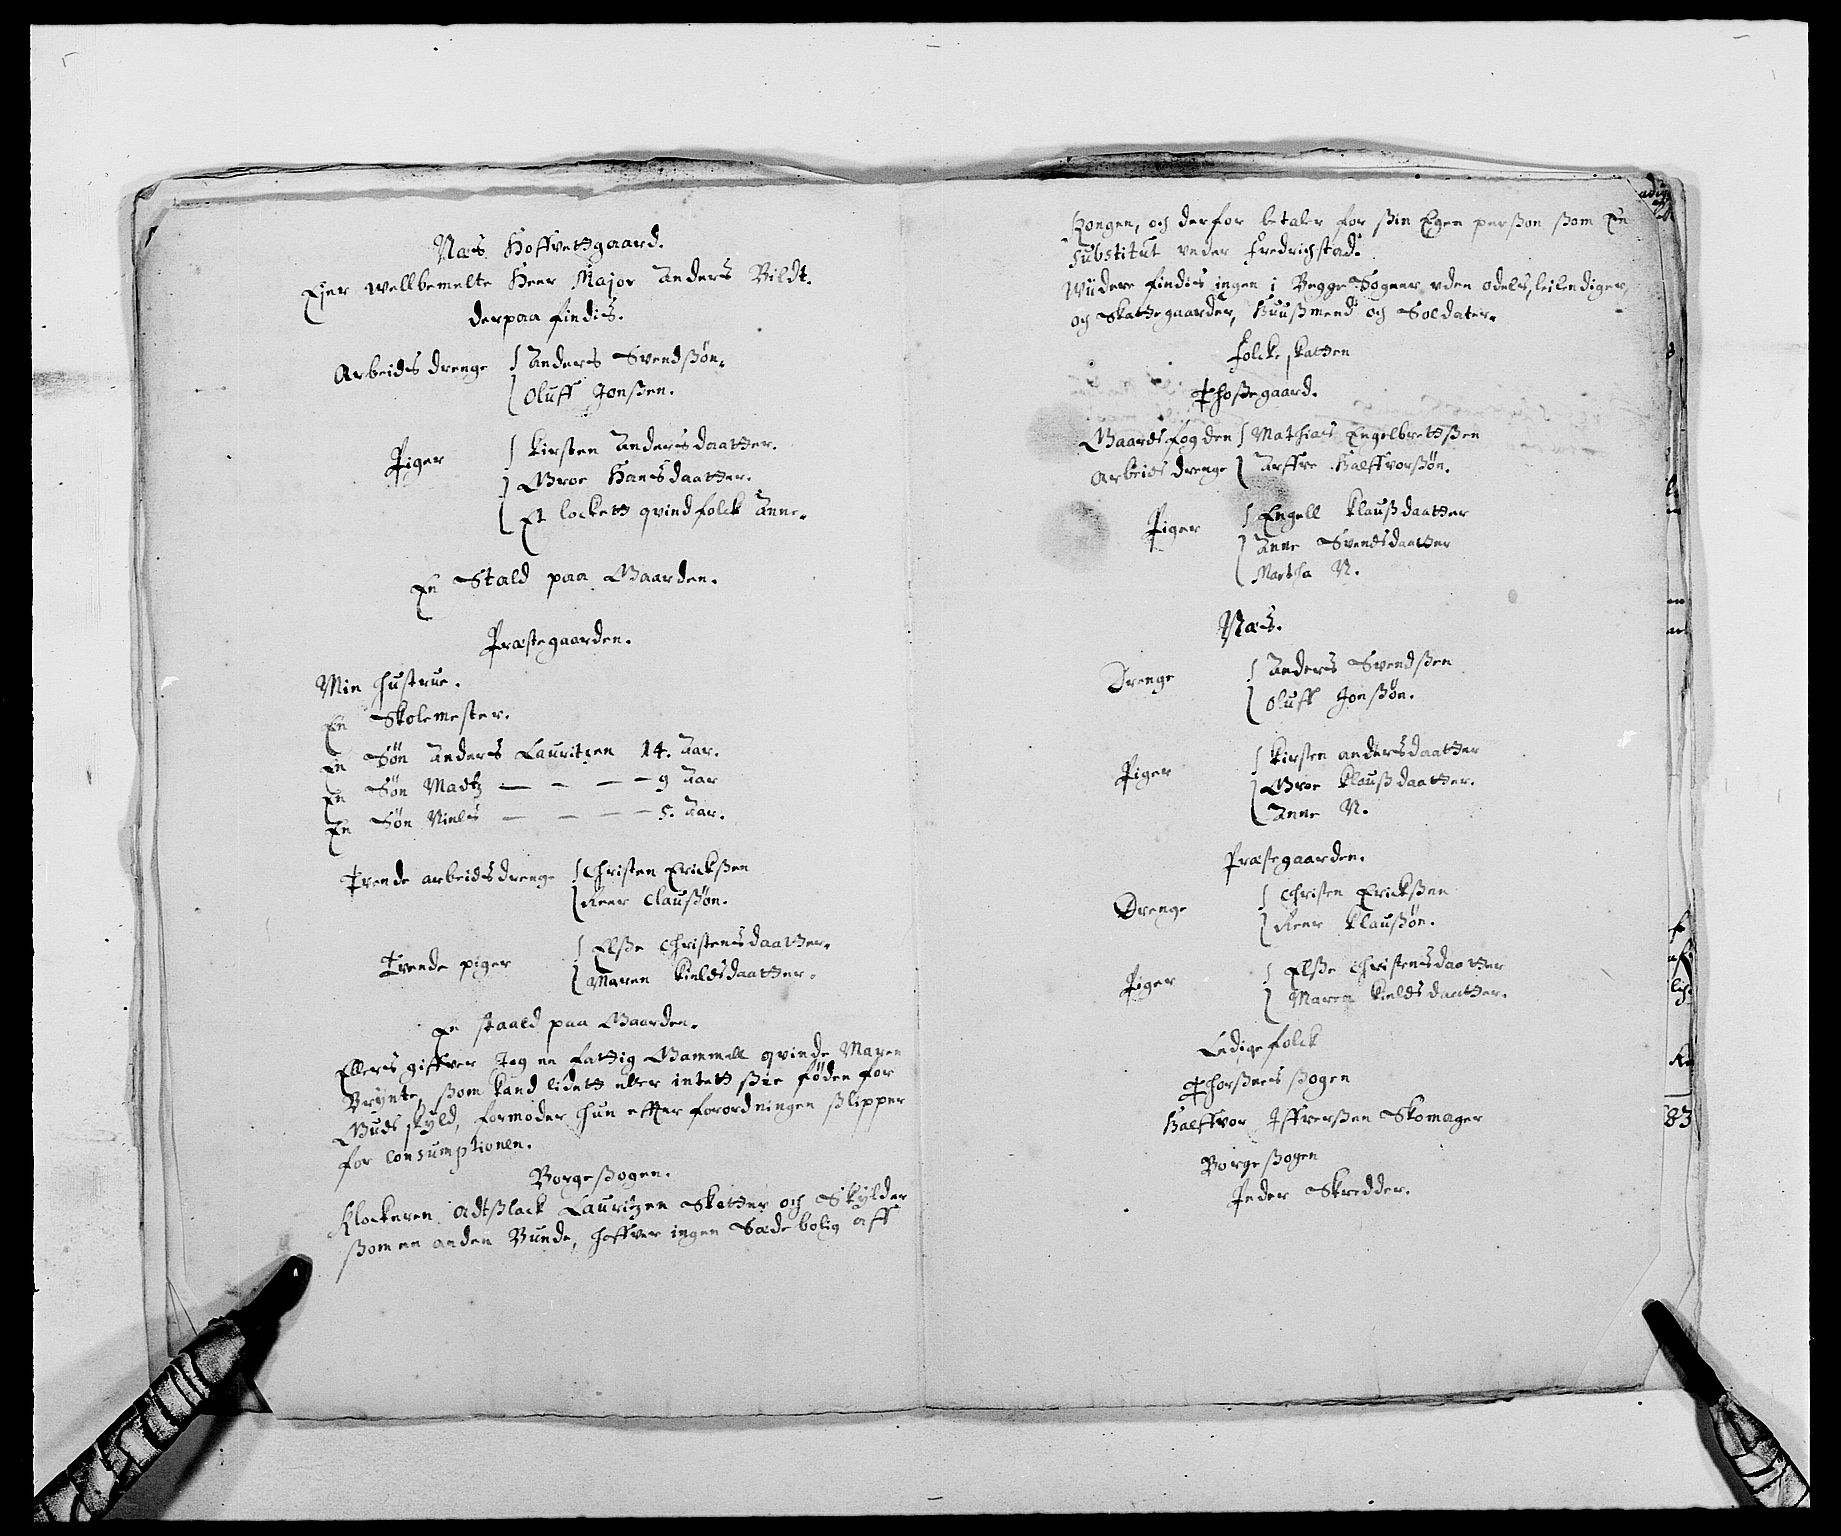 Næs Hoffvettgaard.
Ejer wellbemelte Herr Major Anders Bildt.
derpaa findis.
Arbeids drenge { Anders Svendßøn.
{ Oluff Jonßen.
Piger { Kirsten Andersdaatter.
{ Groe Hansdaatter.
{ Et lockett qvindfolck Anne.
En Stald paa Gaarden.
Præstegaarden.
Min hustrue.
En Skolemester.
En Søn Anders Lauritzen 14. Aar.
En Søn Madtz — — — — 9 Aar
En Søn Niels — — — — 5. Aar.
Tvende arbeids drenge { Christen Erickßen
{ Peer Claußøn.
Tvende piger { Elße Christensdaatter.
{ Maren Kieldsdaatter.
En staald paa Gaarden.
Ellers giffver Jeg en fattig Gammell qvinde Maren
Brynte, ßom kand lidett eller intett ßee føden for
Guds skyld, formoder hun effter forordningen ßlipper
for Consumptionen.
Borge ßogen.
Klockeren Adtßlack Lauritzen Skatter och Skylder
ßom en anden Bunde, haffver ingen Sædebolig aff
Kongen, och derfor betaler for ßin Egen perßon ßom En
Substitut under Fredrichstad.
Widere findis ingen i Begge Sogner uden odels, leilendiger,
och Skattegaarder, Huußmend och Soldater.
Folckeskatten
Thoßegaard.
Gaardsfogden { Mathias Engelbrettßen
Arbeids drenge { Arffve Halffvorßøn.
Piger { Engell Klaußdaatter
{ Anne Svendsdaatter
{ Martha N.
Næs.
Drenge { Anders Svendßen
{ Oluff Jonßøn.
Piger { Kirsten andersdaatter
{ Groe Klaußdaatter.
{ Anne N.
Præstegaarden.
Drenge { Christen Erickßen
{ Peer Klaußøn.
Piger { Elße Christensdaatter
{ Maren Kieldsdaatter.
Ledige folck
Thorsnes ßogen
Halffvor Iffverßen Skomager
Borge ßogen
Peder Skredder.
83